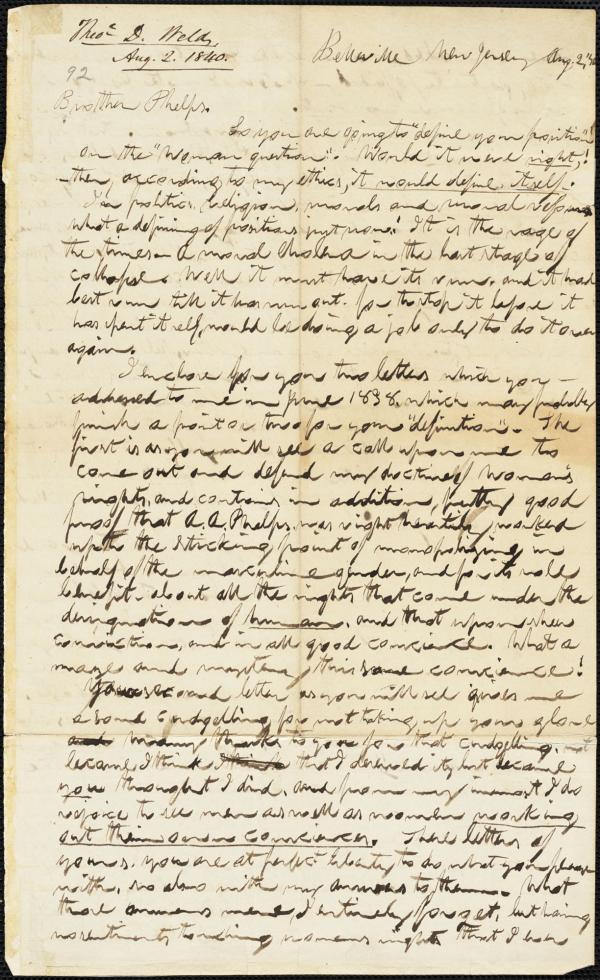 Theo. D. Weld,
Aug. 2. 1840.
92
Belleville New Jersey Aug. 2,
Brother Phelps.
So you are going to "define your position"
on the "Woman question". Would it were right,
then, according to my ethics, it would define itself.
In politics, religion, morals and moral reform
what a defining of positions just now! It is the rage of
the times - A moral cholera in the last stage of
collapse. Well it must have its run, and it had
best run till it has run out. for to stop it before it
has spent itself, would be doing a job only to do it over
again.
I enclose for you two letters which you
addressed to me in June 1838, which may probably
furnish a point or two for your "definition". The
first is as you will see a call upon me to
come out and defend my doctrine of Woman's
rights, and contains in addition, pretty good
proof that A. A. Phelps was right heartily worked
up to the sticking point of monopolizing in
behalf of the masculine gender, and for its sole
benefit about all the rights that come under the
designation of human, and that upon sheer
conviction, and in all good conscience. What a
maze and mystery this same conscience!
Your second letter as you will see gives me
a sound cudgelling for not taking up your glove
many thanks to you for that cudgelling, not
because I think that I deserved it, but because
you thought I did, and from my inmost I do
rejoice to see men as well as women working
out their own consciences. These letters of
yours, you are at perfect liberty to do what you please
with, so also with my answers to them. What
those answers were, I entirely forget, but having
no sentiments touching womens rights that I